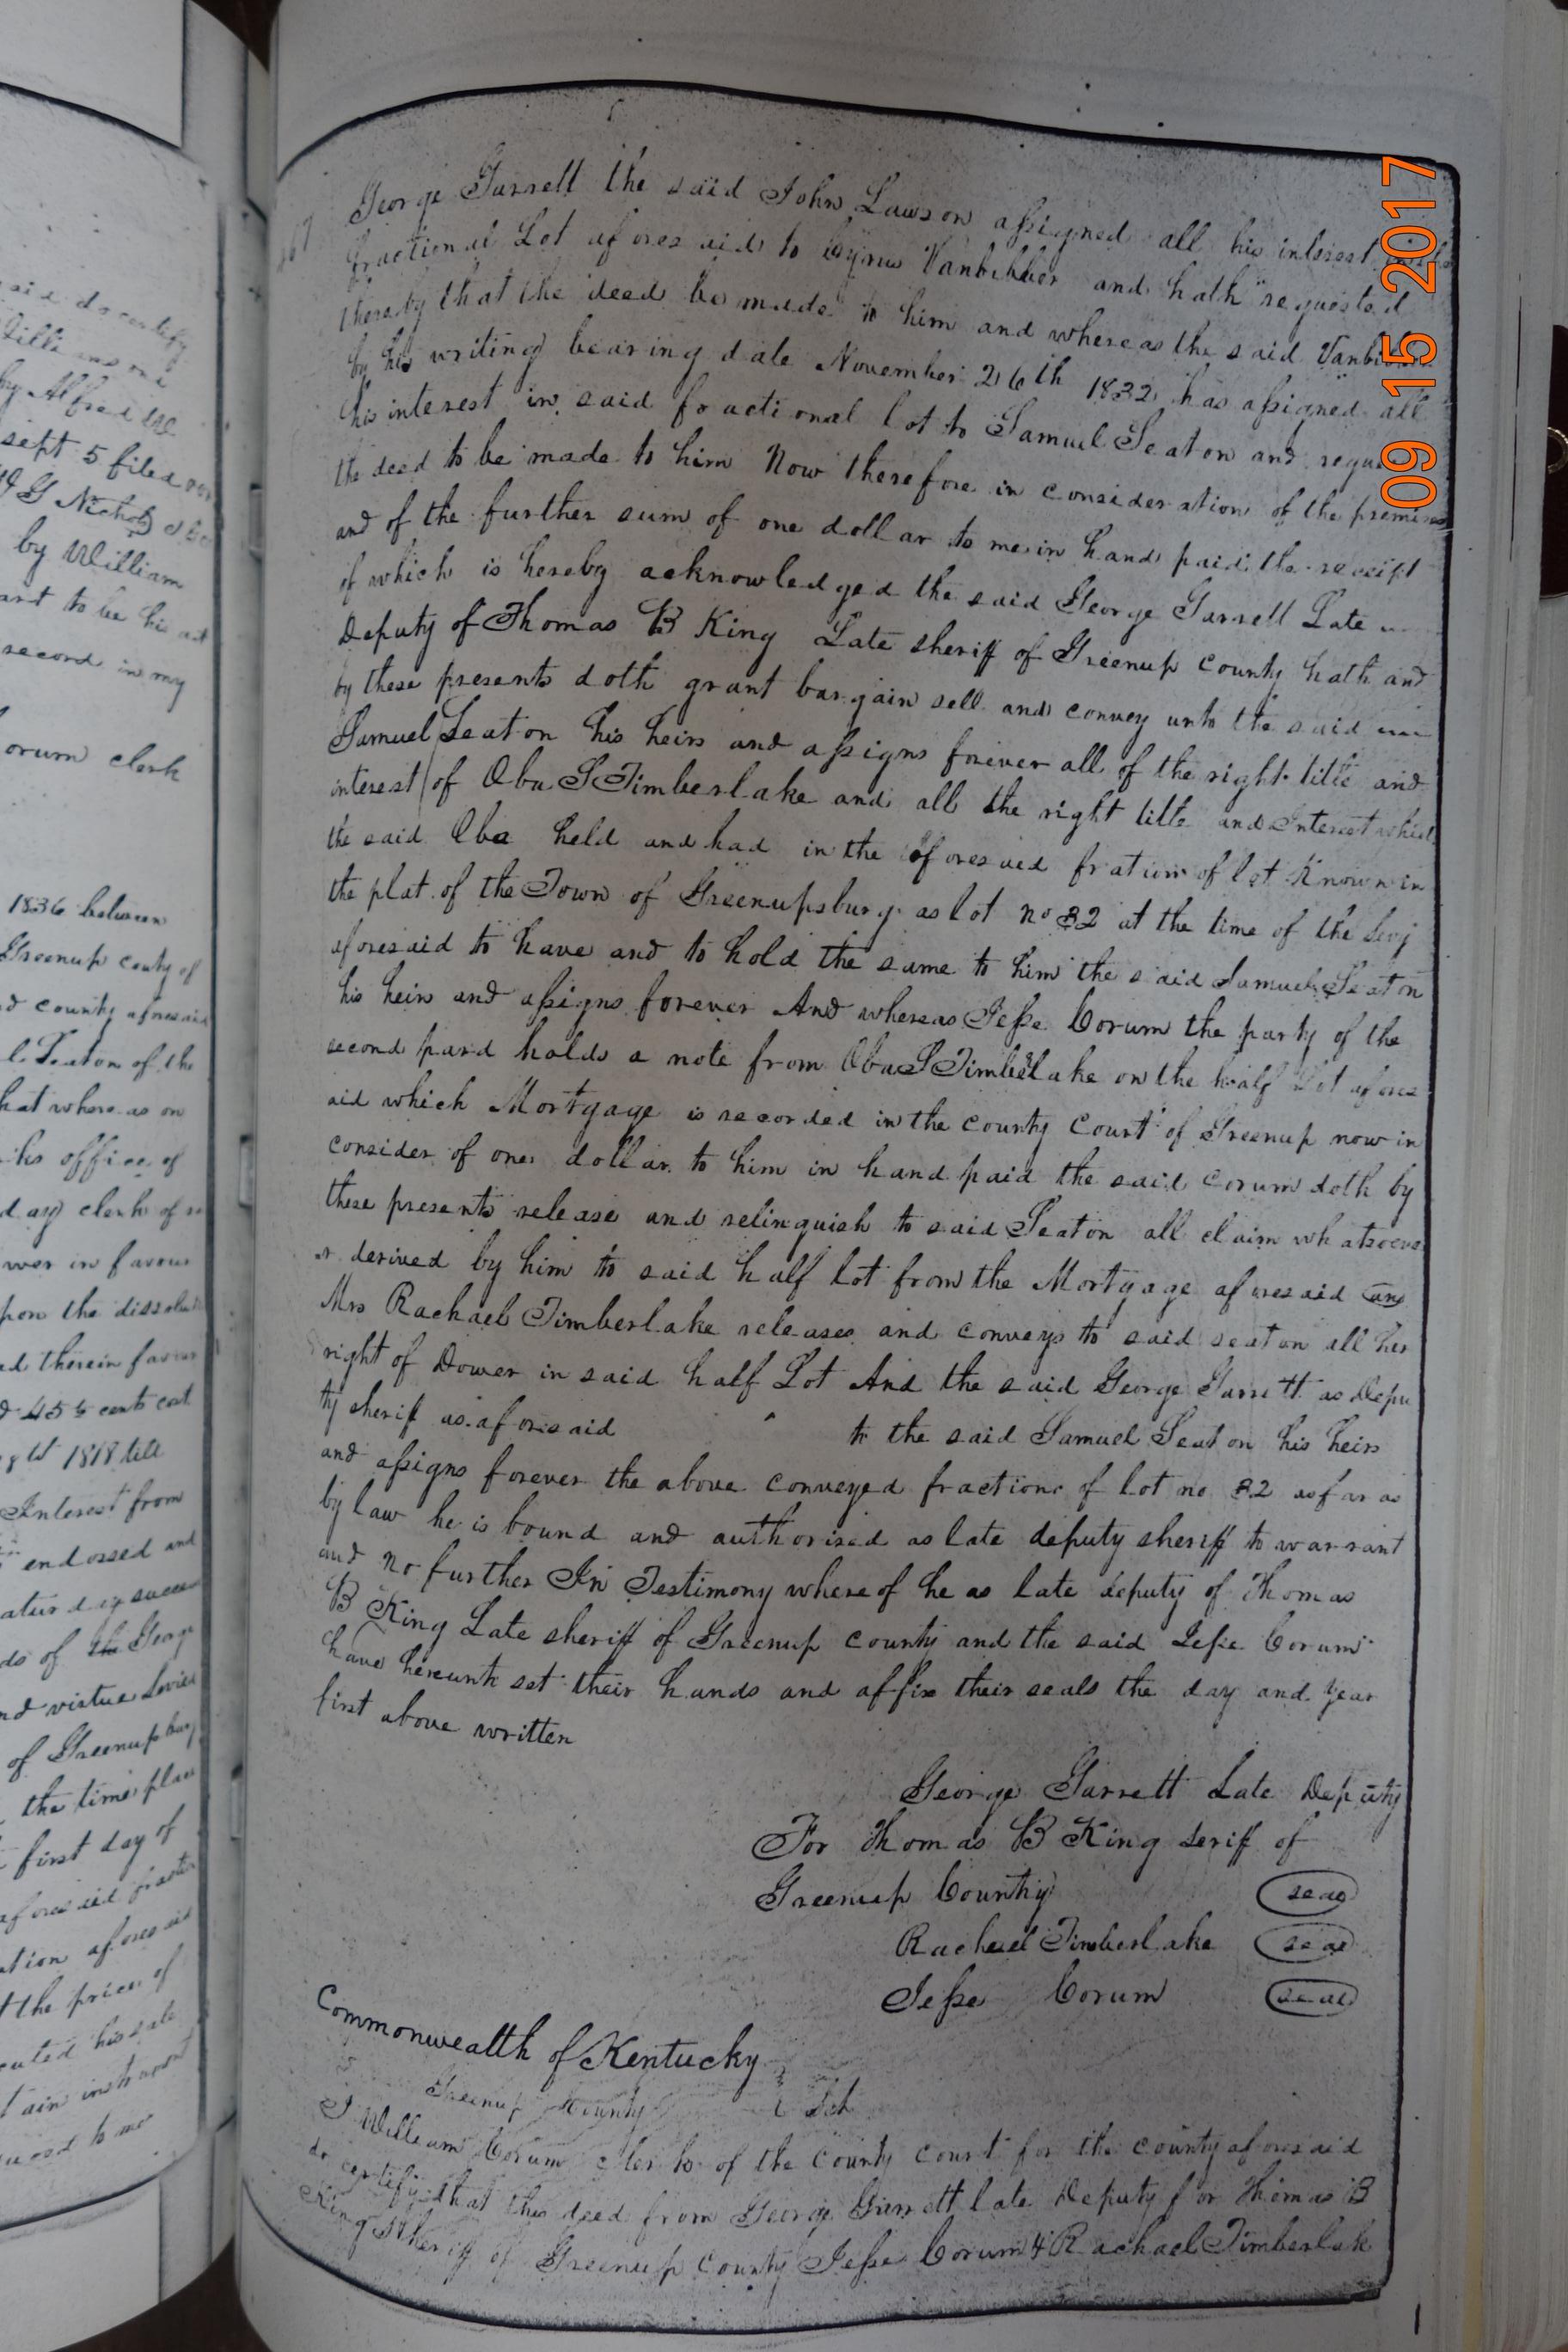 said do certify
by Alfred
sept 5 filed
G Nichols
by William
to be his act
record in my
orum clerk
1836 between
Greenup couty of
county aforesaid
Seaton of the
hat where as on
his office of
day clerk of
wer in favour
pon the dissolu
ed therein favour
45½ cents cost
1818 till
Interest from
endossed and
aturday succe
ds of the George
nd virtue Levied
of Greenupsburg
the time place
first day of
aforesaid fracti
ation aforesaid
the price of
cuted his sale
tain instrument
67
George Garrett the said John Lawson assigned all his interest
fractional Lot aforesaid to Cyrus Vanbibber and hath requested
thereby that the deed be made to him and whereas the said Vanbibber
by his writing bearing date November 26th 1832 has assigned all
his interest in said fractional lot to Samuel Seaton and reque
the deed to be made to him Now therefore in consideration of the premises
and of the further sum of one dollar to me in hand paid the receipt
of which is hereby acknowledged the said George Garrett Late
Deputy of Thomas B King Late sheriff of Greenup County hath and
by these presents doth grant bargain sell and convey unto the said
Samuel Seaton his heirs and assigns forever all of the right title and
interest of Oba S Timberlake and all the right title and Interest which
the said Oba held and had in the aforesaid fratium of lot Known in
the plat of the Town of Greenupsburg as lot no 32 at the time of the levy
aforesaid to have and to hold the same to him the said Samuel Seaton
his heirs and assigns forever And whereas Jesse Corum the party of the
second pard holds a note from Oba S Timberlake on the half Lot afores
aid which Mortgage is recorded in the county Court of Greenup now in
consider of one dollar to him in hand paid the said Corum doth by
these presents release and relinquish to said Seaton all claim whatsoeve
r derived by him to said half lot from the Mortgage aforesaid and
Mrs Rachael Timberlake releases and conveys to said seaton all her
right of Dower in said half Lot And the said George Garrett as Depu
ty sheriff as aforesaid to the said Samuel Seaton his heirs
and assigns forever the above conveyed fraction of lot no 32 as far as
by law he is bound and authorised as late deputy sheriff to warrant
and no further In Testimony whereof he as late deputy of Thomas
B King Late sheriff of Greenup county and the said Jesse Corum
have hereunto set their hands and affix their seals the day and year
first above written
George Garrett Late Deputy
For Thomas B King Seriff of
Greenup County seal
Rachael Timberlake seal
Jesse Corum seal
Commonwealth of Kentucky
Greenup County Sct
I William Corum clerk of the county court for the county aforesaid
do certify that this deed from George Garrett late Deputy for Thomas B
King Sheriff of Greenup County Jesse Corum & Rachael Timberlak
09 15 2017